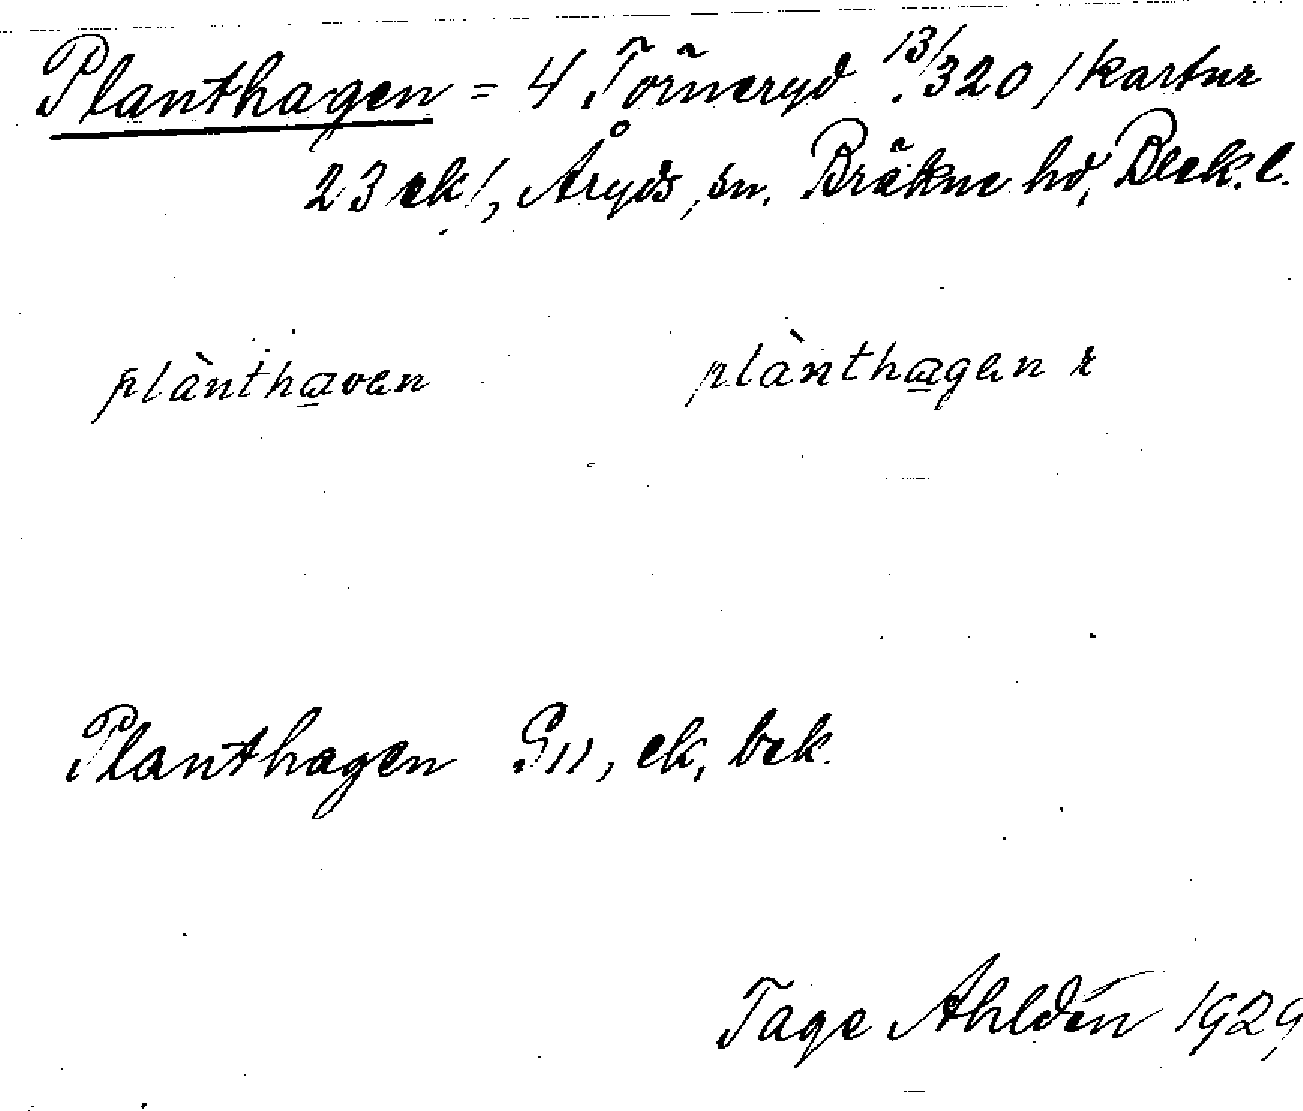 Planthagen = 4 Törneryd 13/320 /kartnr
23 ek/, Åryds, sn. Bräkne hd, Blek. l.
plànthaven plànthagen r
Planthagen G11, ek, bek.
Tage Ahldén 1929